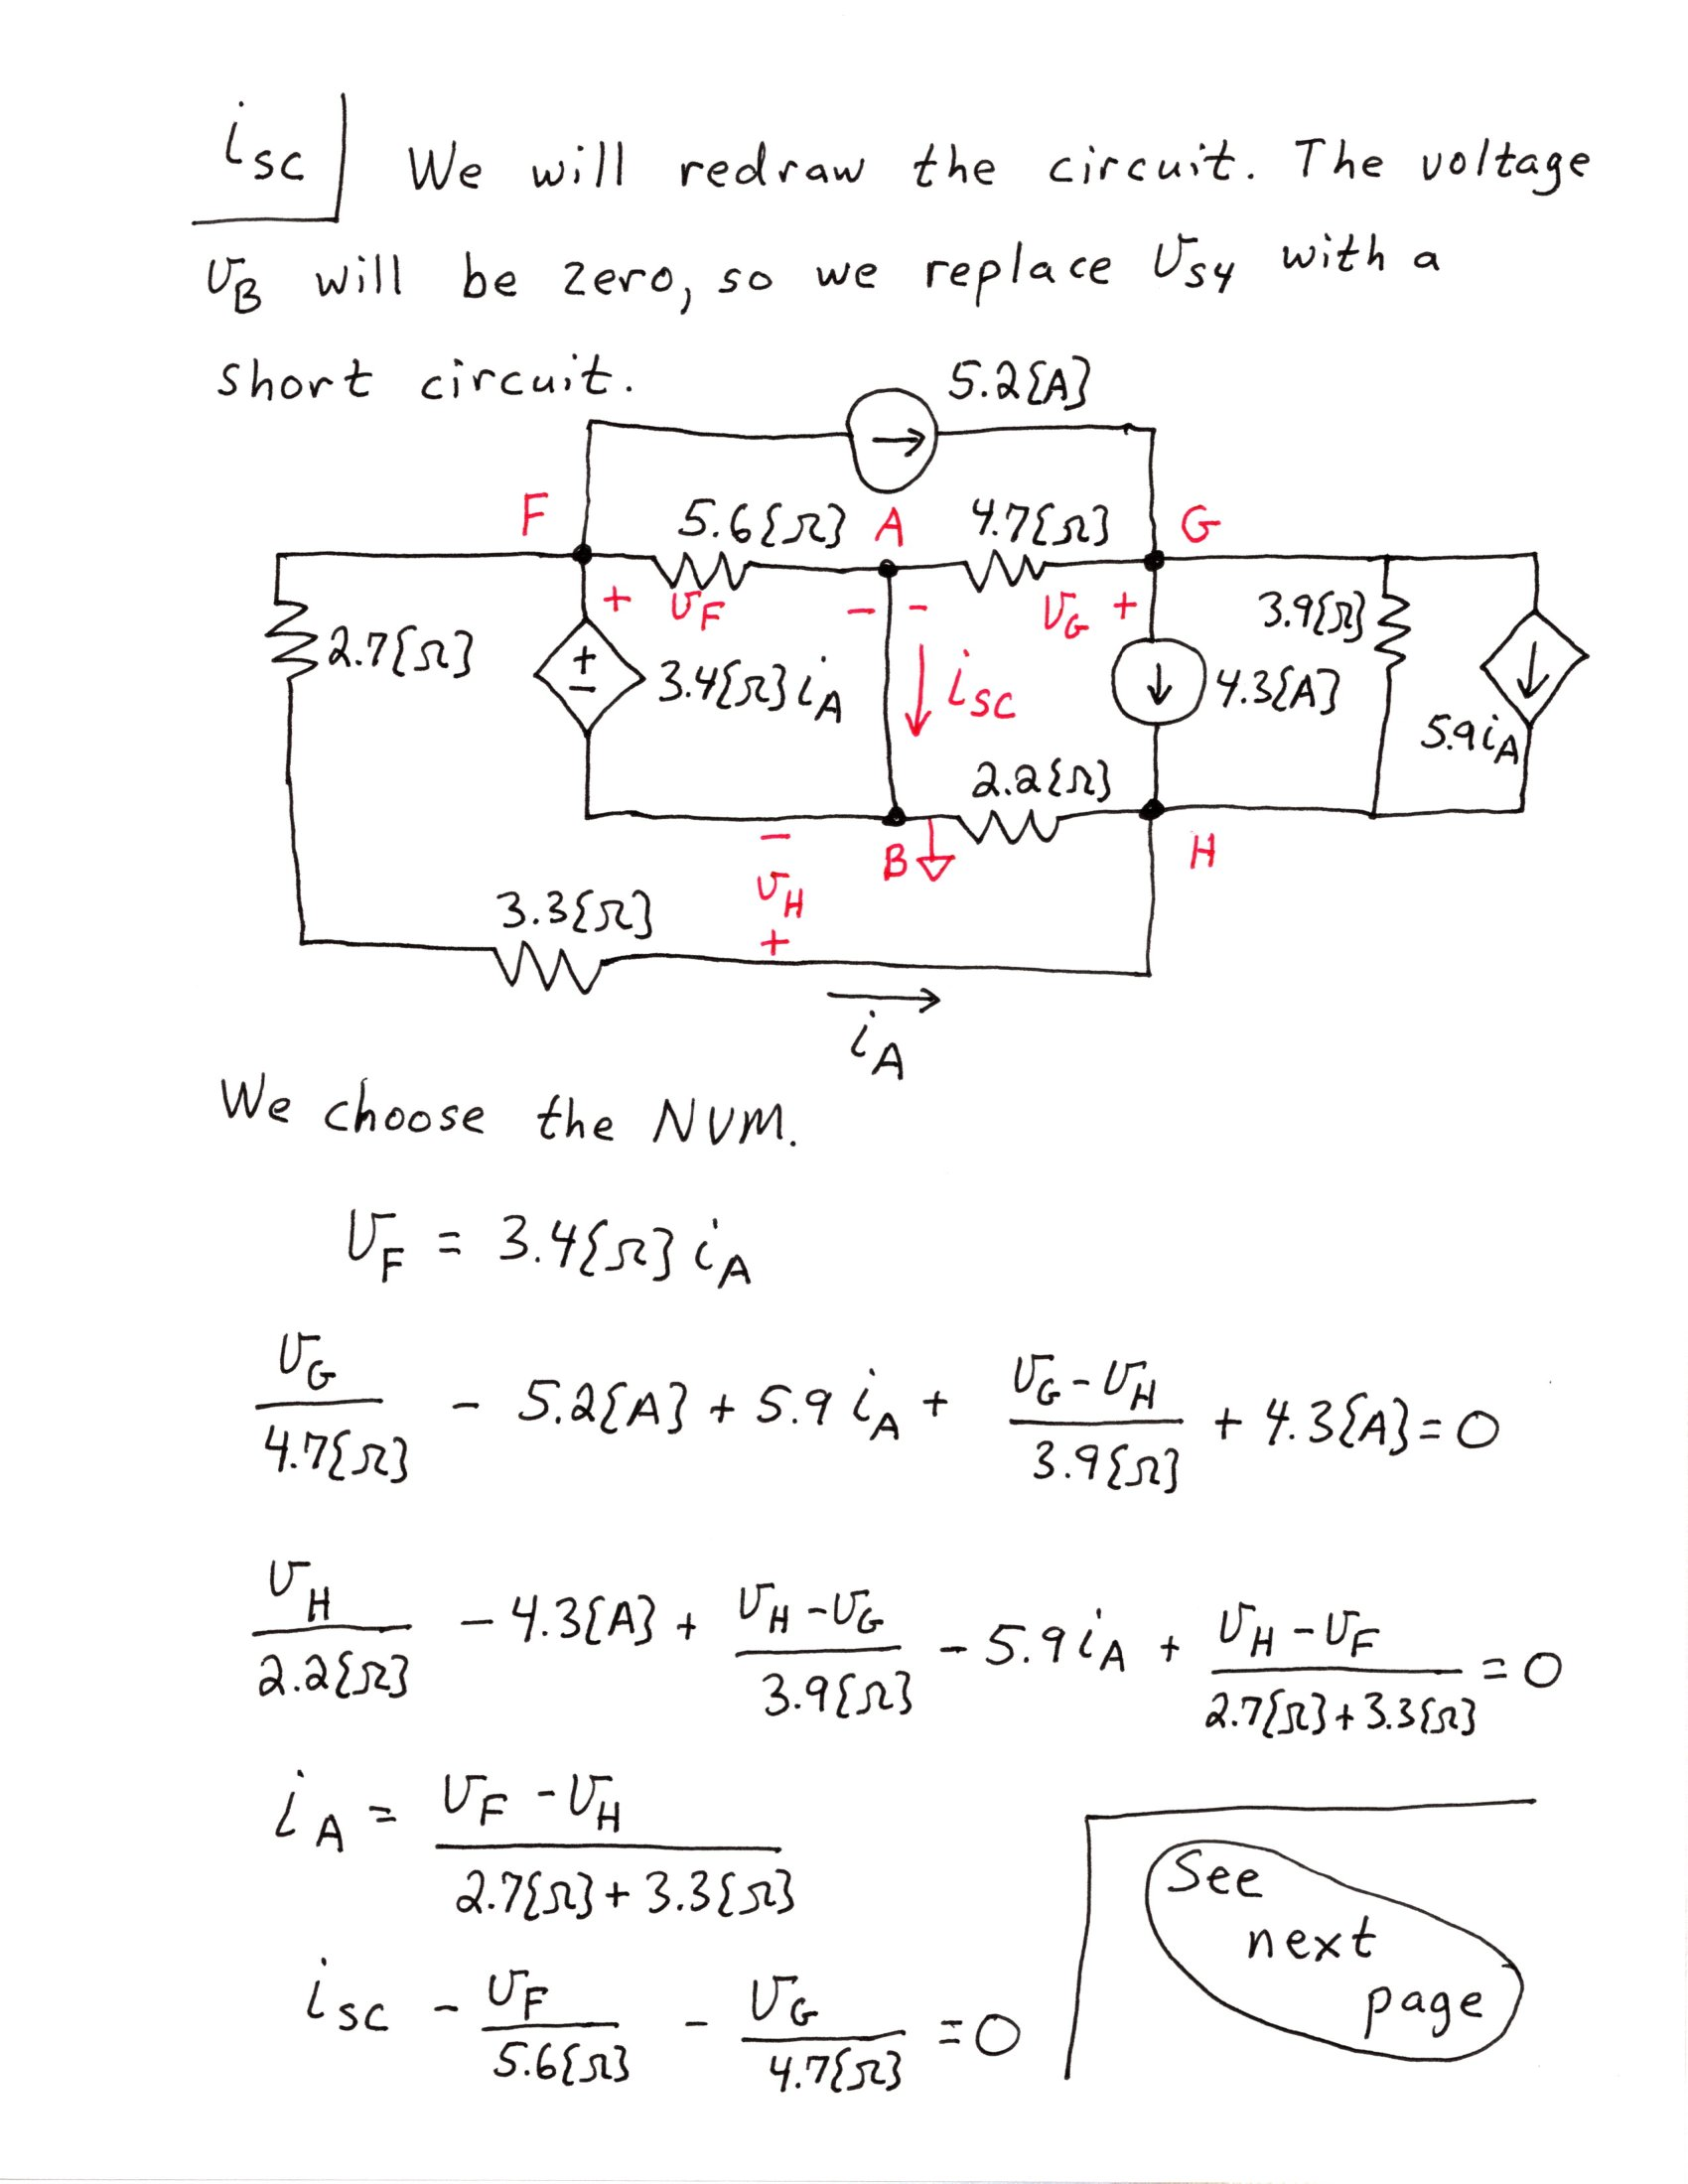 iSC We will redraw the circuit. The voltage
vB will be zero, so we replace vS4 with a
short circuit.
5.2{A}
F 5.6{Ω} A 4.7{Ω} G
+ vF - - vG +
2.7{Ω} + - 3.4{Ω}iA iSC 4.3{A} 3.9{Ω} 5.9iA
2.2{Ω}
- B H
vH
3.3{Ω} +
iA
We choose the NVM.
vF = 3.4{Ω}iA
vG/4.7{Ω} - 5.2{A} + 5.9iA + (vG-vH)/3.9{Ω} + 4.3{A} = 0
vH/2.2{Ω} - 4.3{A} + (vH-vG)/3.9{Ω} - 5.9iA + (vH-vF)/(2.7{Ω}+3.3{Ω}) = 0
iA = (vF-vH)/(2.7{Ω}+3.3{Ω})
iSC - vF/5.6{Ω} - vG/4.7{Ω} = 0
See
next
page